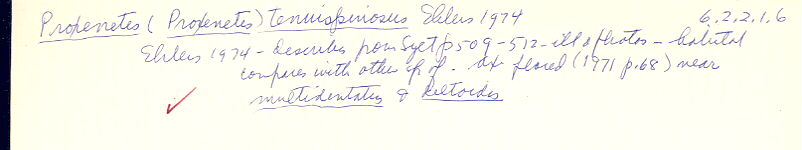 Proxenetes (Proxenetes) tenuispinosus Ehlers 1974 6.2.2.1.6
Ehlers 1974 - describes from Sylt p 509 - 512 - ill & photos - habitat
compares with other sp of . placed (1971 p. 68) near
multidentatus & deltoides